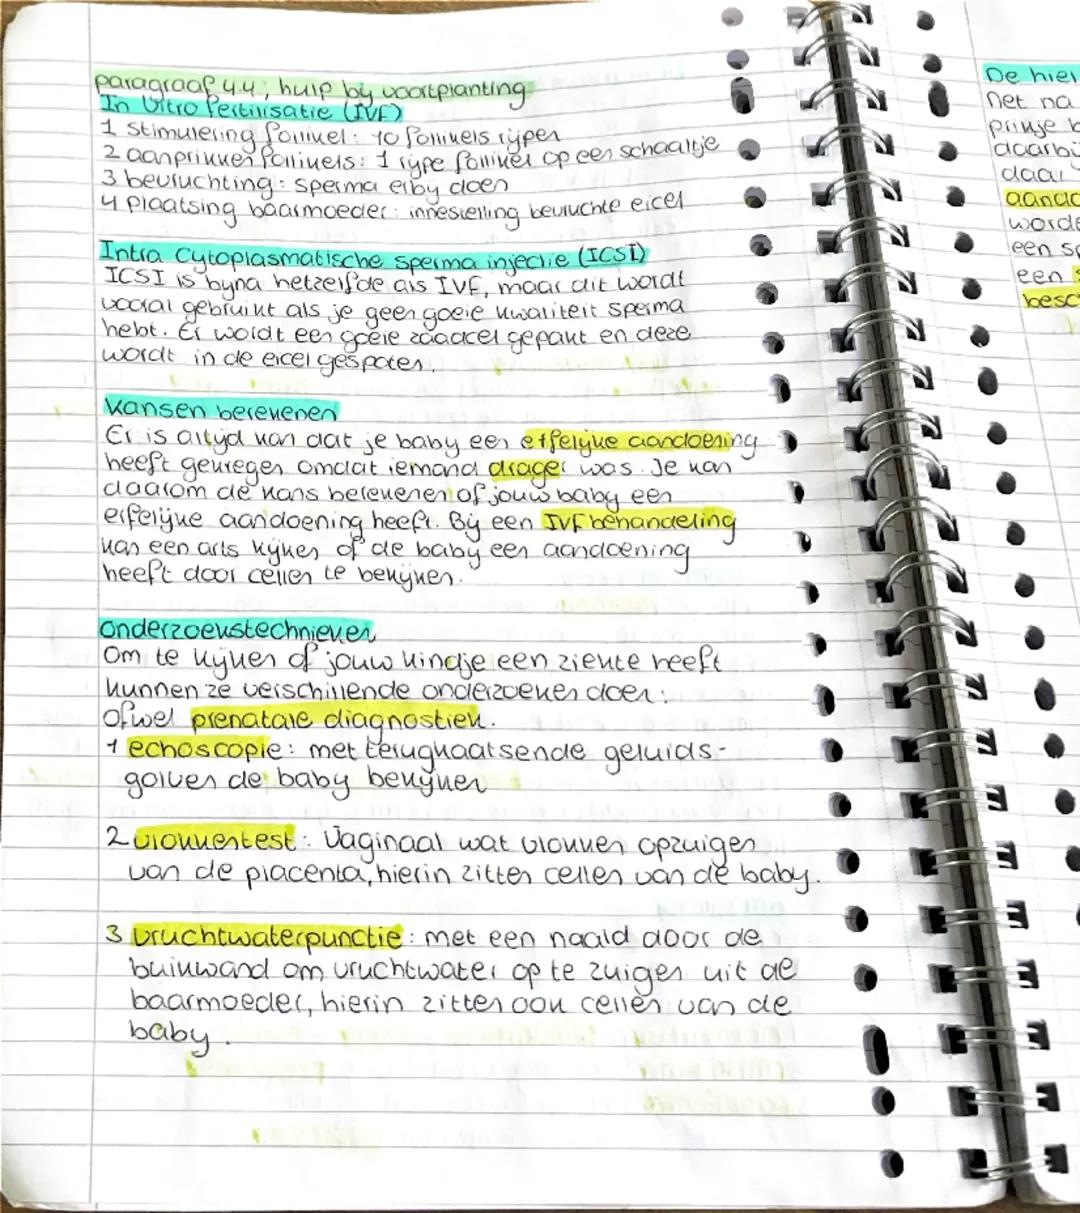 paragraaf 4.4; hulp bij voortplanting
In Vitro Fertilisatie (IVF)
1 stimulering follikel: 10 follikels rijpen
2 aanprikken follikels: 1 rijpe follikel op een schaaltje
3 bevruchting: sperma erbij doen
4 plaatsing baarmoeder: innesteling bevruchte eicel
Intra Cytoplasmatische Sperma injectie (ICSI)
ICSI is bijna hetzelfde als IVF, maar dit wordt
vooral gebruikt als je geen goeie kwaliteit sperma
hebt. Er wordt een goeie zaadcel gepakt en deze
wordt in de eicel gespoten.
Kansen berekenen
Er is altijd kan dat je baby een erfelijke aandoening
heeft gekregen omdat iemand drager was. Je kan
daarom de kans berekenen of jouw baby een
erfelijke aandoening heeft. Bij een IVF behandeling
kan een arts kijken of de baby een aandoening
heeft door cellen te bekijken.
Onderzoekstechnieken
Om te kijken of jouw kindje een ziekte heeft
kunnen ze verschillende onderzoeken doen:
Ofwel prenatale diagnostiek.
1 echoscopie: met terugkaatsende geluids-
golven de baby bekijken
2 vlokkentest: Vaginaal wat vlokken opzuigen
van de placenta, hierin zitten cellen van de baby.
3 vruchtwaterpunctie: met een naald door de
buikwand om vruchtwater op te zuigen uit de
baarmoeder, hierin zitten ook cellen van de
baby.
De hier
net na
prikje b
daarbij
daar
aando
worde
een sp
een
besc